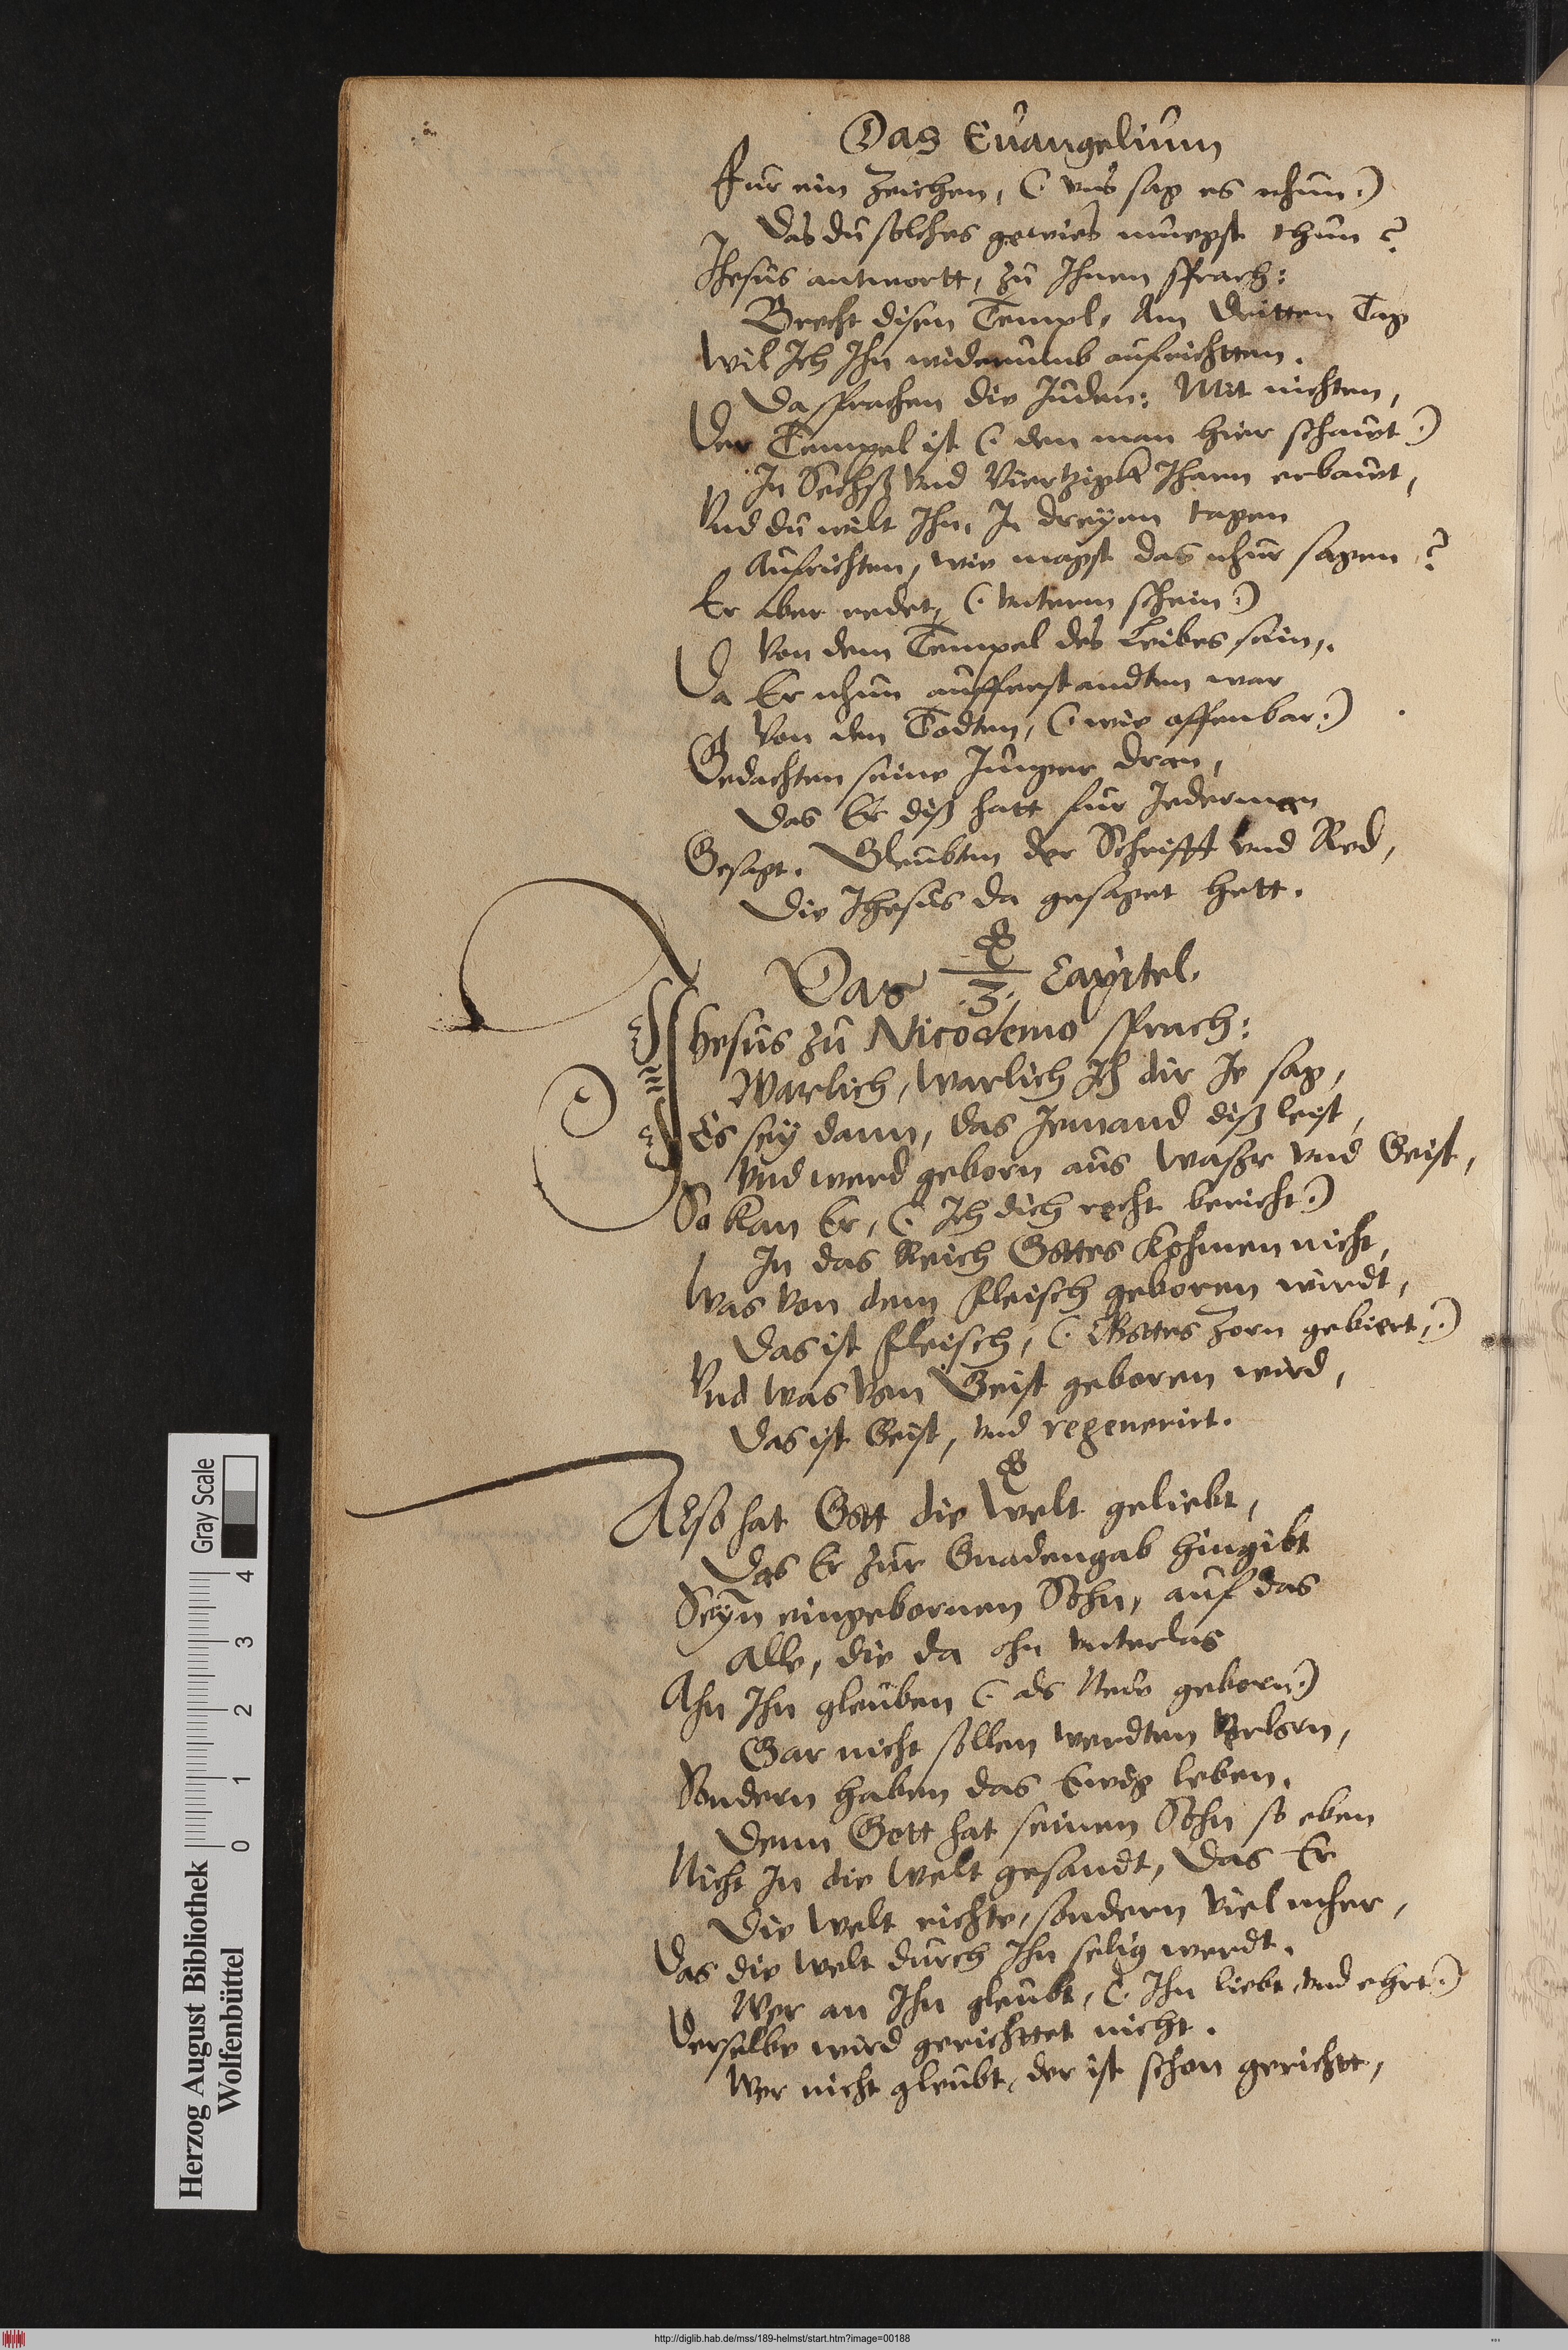 Das Euangelium
Fur ein Zeichen, (: vns sag es nhun :)
Das du solches gewies muegst thun?
Jhesus antwortt, zu Ihnen sprach:
Brecht disen Templ, Am Dritten Tag
Wil Ich Ihn widerumb aufrichtten.
Da sprachen die Juden: Mit nichten,
Der Tempel ist (: den man hier schauwt :)
In Sechß vnd Viertzigk Iharn erbauwt,
Vnd du wilt Ihn, In dreyen tagen
Aufrichten, wie magst das nhur sagen?
Er aber redet, (: vnterm schein :)
Von dem Tempel des Leibes sein,
Da Er nhun aufferstandten war
Von den Todten, (: wie offenbar :)
Gedachten seine Junger dran,
Das Er diß hatt fur Iederman
Gesagt. Gleubten der Schrifft vnd Red,
Die Jhesus da gesaget hett.
Das .3. Capitel.
Jhesus zu Nicodemo sprach:
Warlich, Warlich Ich dir Ie sag,
Es sey dann, das Iemand diß leist,
Vnd werd geborn aus Waßer vnd Geist,
So kan Er, (: Ich dich recht bericht :)
In das Reich Gottes kohmen nicht,
Was von dem fleisch geboren wirdt,
Das ist fleisch, (: Gottes Zorn gebiert, :)
Vnd was vom Geist geboren wird,
Das ist Geist, vnd regenerirt.
Also hat Gott die Welt geliebt,
Das Er zur Gnadengab hingibt
Seyn eingebornen Sohn, auf das
Alle, die da ohn vnterlas
Ahn Ihn gleuben (: als Neue geborn :)
Gar nicht sollen werdten Verlorn,
Sondern haben das Ewig leben.
Denn Gott hat seinen Sohn so eben
Nicht In die Welt gesandt, Das Er
Die Welt richte, sondern viel mher,
Das die Welt durch Ihn selig werdt.
Wer an Ihn gleubt, (: Ihn liebt vnd ehrt :)
Derselbe wird gerichttet nicht.
Wer nicht gleubt, der ist schon gerichtt,
Herzog August Bibliothek
Wolfenbüttel
Gray Scale
0 1 2 3 4
http://diglib.hab.de/mss/189-helmst/start.htm?image=00188